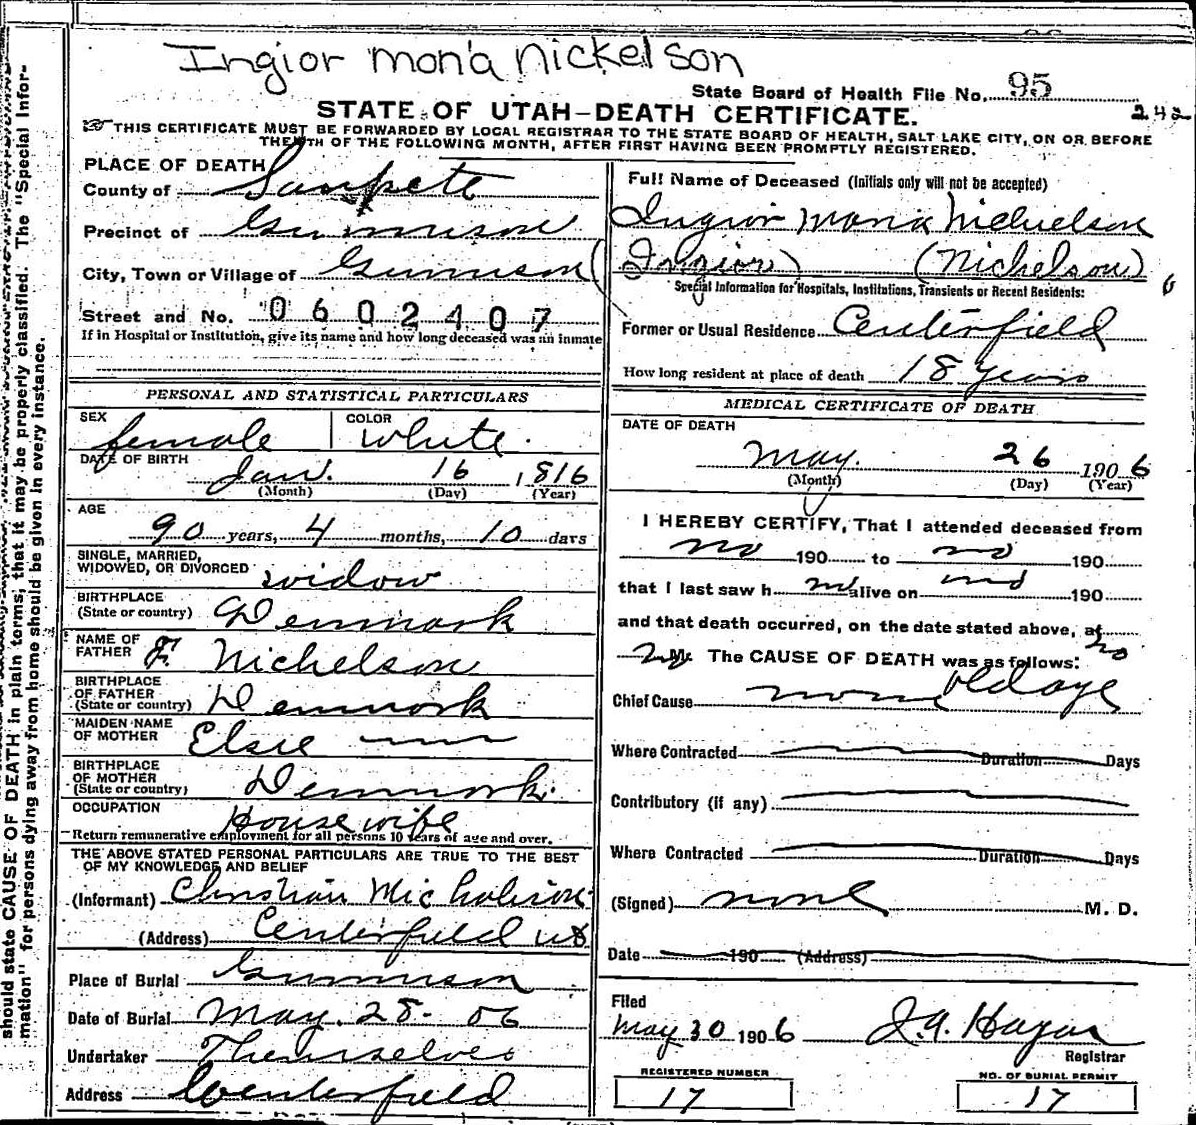 Ingior mona nickelson
State Board of Health File No. 95
242
STATE OF UTAH-DEATH CERTIFICATE.
THIS CERTIFICATE MUST BE FORWARDED BY LOCAL REGISTRAR TO THE STATE BOARD OF HEALTH, SALT LAKE CITY, ON OR BEFORE
THE TH OF THE FOLLOWING MONTH, AFTER FIRST HAVING BEEN PROMPTLY REGISTERED.
PLACE OF DEATH
County of Sanpete
Precinct of Gunnison
City, Town or Village of Gunnison
Street and No. 0602407
If in Hospital or Institution, give its name and how long deceased was an inmate
PERSONAL AND STATISTICAL PARTICULARS
SEX female COLOR white.
DATE OF BIRTH Jan. 16, 1816
(Month) (Day) (Year)
AGE
90 years, 4 months, 10 days
SINGLE, MARRIED,
WIDOWED, OR DIVORCED widow
BIRTHPLACE
(State or country) Denmark
NAME OF
FATHER F. Nichelson
BIRTHPLACE
OF FATHER
(State or country) Denmark
MAIDEN NAME
OF MOTHER Elsie
BIRTHPLACE
OF MOTHER
(State or country) Denmark.
OCCUPATION Housewife
Return remunerative employment for all persons 10 years of age and over.
THE ABOVE STATED PERSONAL PARTICULARS ARE TRUE TO THE BEST
OF MY KNOWLEDGE AND BELIEF
(Informant) Christian
(Address) Centerfield ut
Place of Burial Gunnison
Date of Burial May. 28- 06
Undertaker Themselves
Address Centerfield
Full Name of Deceased (Initials only will not be accepted)
Ingior Mona
(Ingior) (Nichelson)
Special Information for Hospitals, Institutions, Transients or Recent Residents:
Former or Usual Residence Centerfield
How long resident at place of death 18 years
MEDICAL CERTIFICATE OF DEATH
DATE OF DEATH
May. 26 1906
(Month) (Day) (Year)
I HEREBY CERTIFY, That I attended deceased from
no 190 to no 190
that I last saw h alive on 190
and that death occurred, on the date stated above, at no
M. The CAUSE OF DEATH was as follows:
Chief Cause none old age
Where Contracted Duration Days
Contributory (if any)
Where Contracted Duration Days
(Signed) none M. D.
Date 190 (Address)
Filed
May 30 1906 J.A. Hagan
Registrar
REGISTERED NUMBER
17
NO. OF BURIAL PERMIT
17
should state CAUSE OF DEATH in plain terms, that it may be properly classified. The "Special Infor-
mation" for persons dying away from home should be given in every instance.